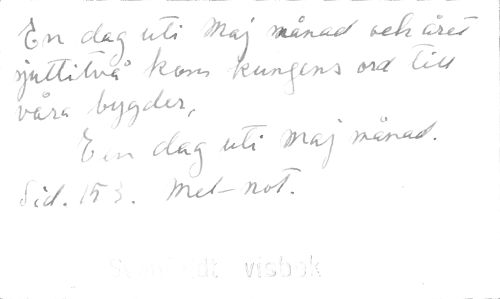 En dag uti Maj månad och året
sjuttitvå kom kungens ord till
våra bygder,
En dag uti Maj månad.
Sid. 153. Mel-not.
visbok